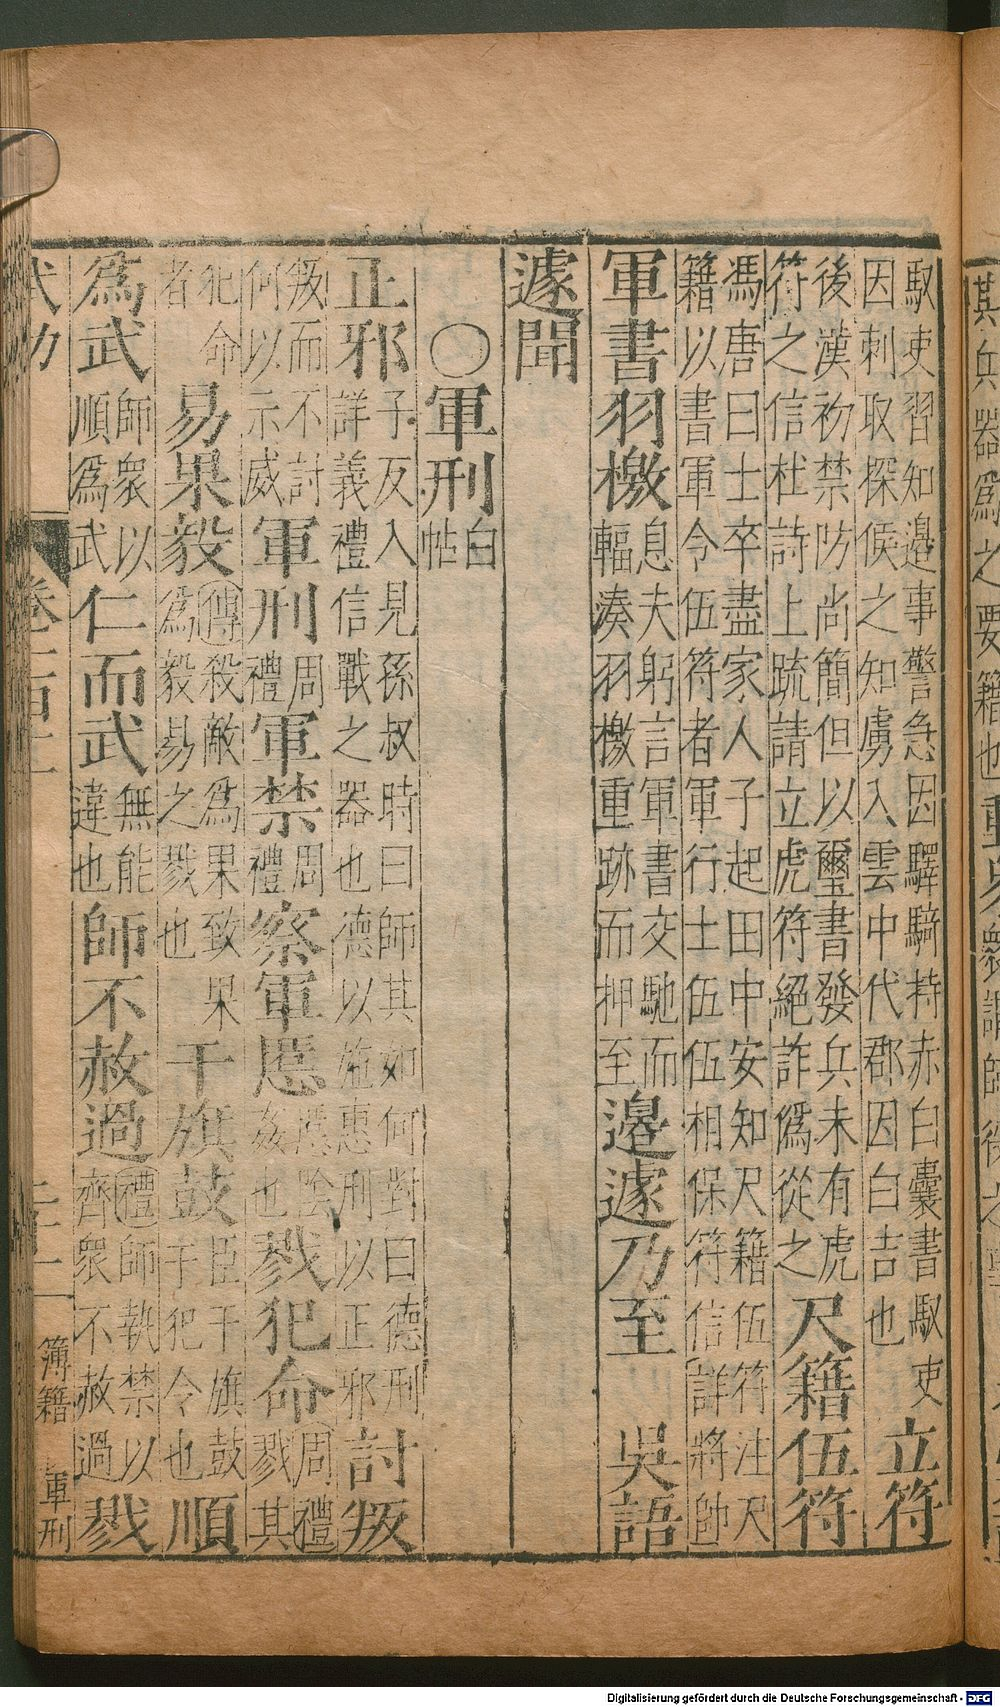 馭吏習知邊事警急因驛騎持赤白囊書馭吏
因刺取探候之知虜入雲中代郡因白吉也
立符
後漢初禁防尚簡但以璽書發兵未有虎
符之信杜詩上疏請立虎符絕詐僞從之
尺籍伍符
馮唐曰士卒盡家人子起田中安知尺籍伍符注尺
籍以書軍令伍符者軍行士伍伍相保符信詳將帥
軍書羽檄
息夫躬言軍書交馳而
輻湊羽檄重跡而押至
邊遽乃至 吳語
遽聞
○軍刑
白
帖
正邪
子反入見孫叔時曰師其如何對曰德刑
詳義禮信戰之器也德以施惠刑以正邪
討叛
叛而不討
何以示威
軍刑
周
禮
軍禁
周
禮
察軍慝
慝陰
姦也
戮犯命
周禮
戮其
犯命
者
易果毅
傳殺敵爲果致果
爲毅易之戮也
干旗鼓
臣干旗鼓
干犯令也
順
爲武
師衆以
順爲武
仁而武
無能
違也
師不赦過
禮師執禁以
齊衆不赦過
戮
簿籍 軍刑
其兵器爲之要籍也
Digitalisierung gefördert durch die Deutsche Forschungsgemeinschaft - DFG